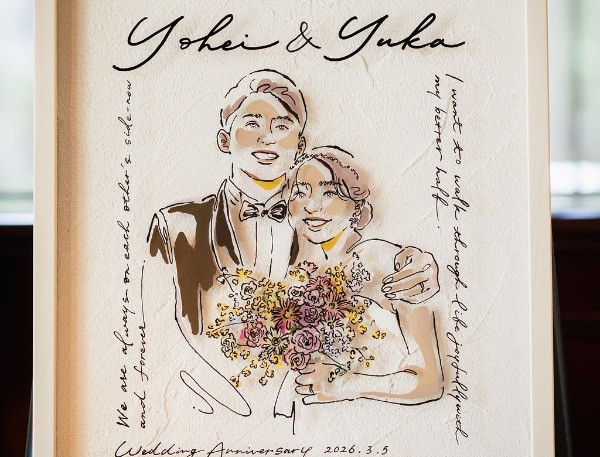 Yohei & Yuka
We are always on each other's side-now
and forever
I want to walk through life joyfully with
my better half.
Wedding Anniversary 2026.3.5